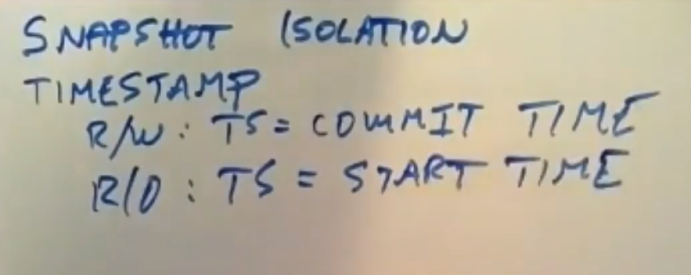 SNAPSHOT ISOLATION
TIMESTAMP
R/W: TS = COMMIT TIME
R/O: TS = START TIME